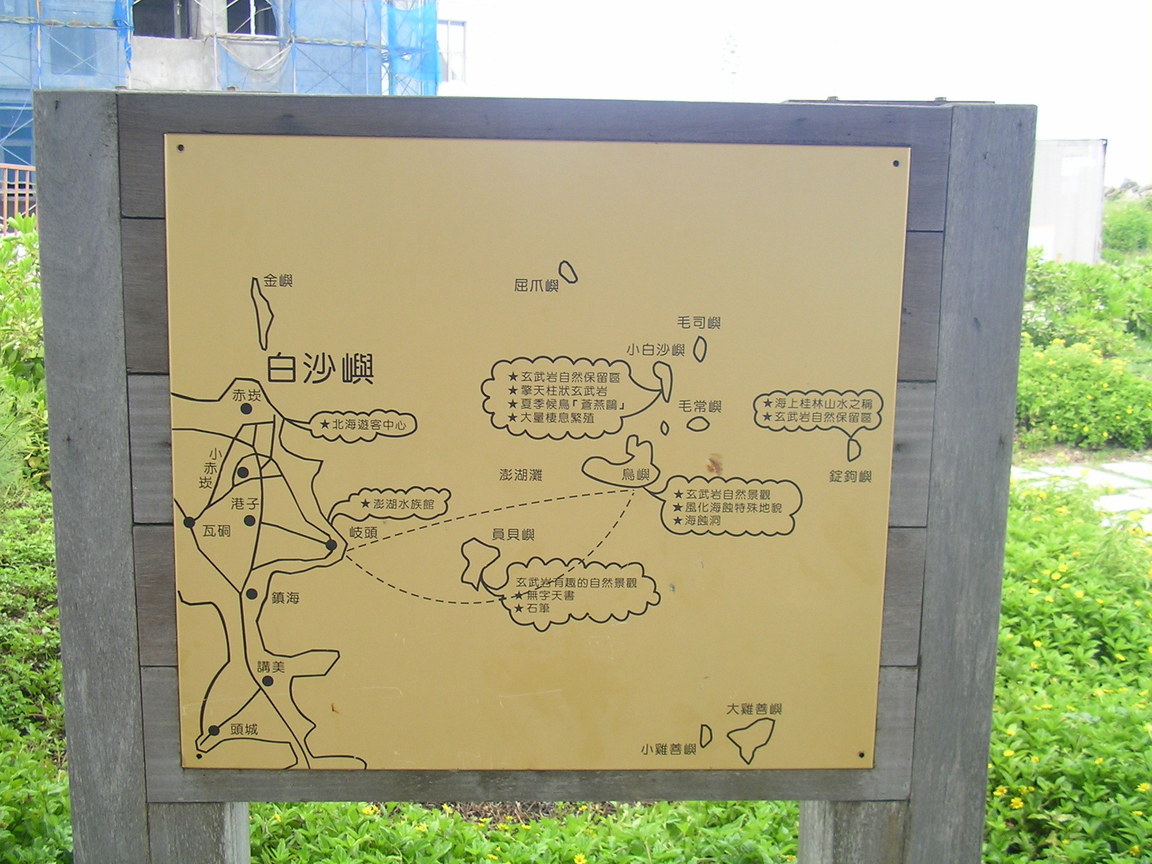 金嶼
屈爪嶼
毛司嶼
小白沙嶼
白沙嶼
★玄武岩自然保留區
★擎天柱狀玄武岩
★夏季候鳥「蒼燕鷗」
★大量棲息繁殖
赤崁
★北海遊客中心
毛常嶼
★海上桂林山水之稱
★玄武岩自然保留區
小赤崁
澎湖灘
鳥嶼
錠鉤嶼
港子
★澎湖水族館
★玄武岩自然景觀
★風化海蝕特殊地貌
★海蝕洞
瓦硐
岐頭
員貝嶼
玄武岩有趣的自然景觀
★無字天書
★石筆
鎮海
講美
頭城
大雞善嶼
小雞善嶼